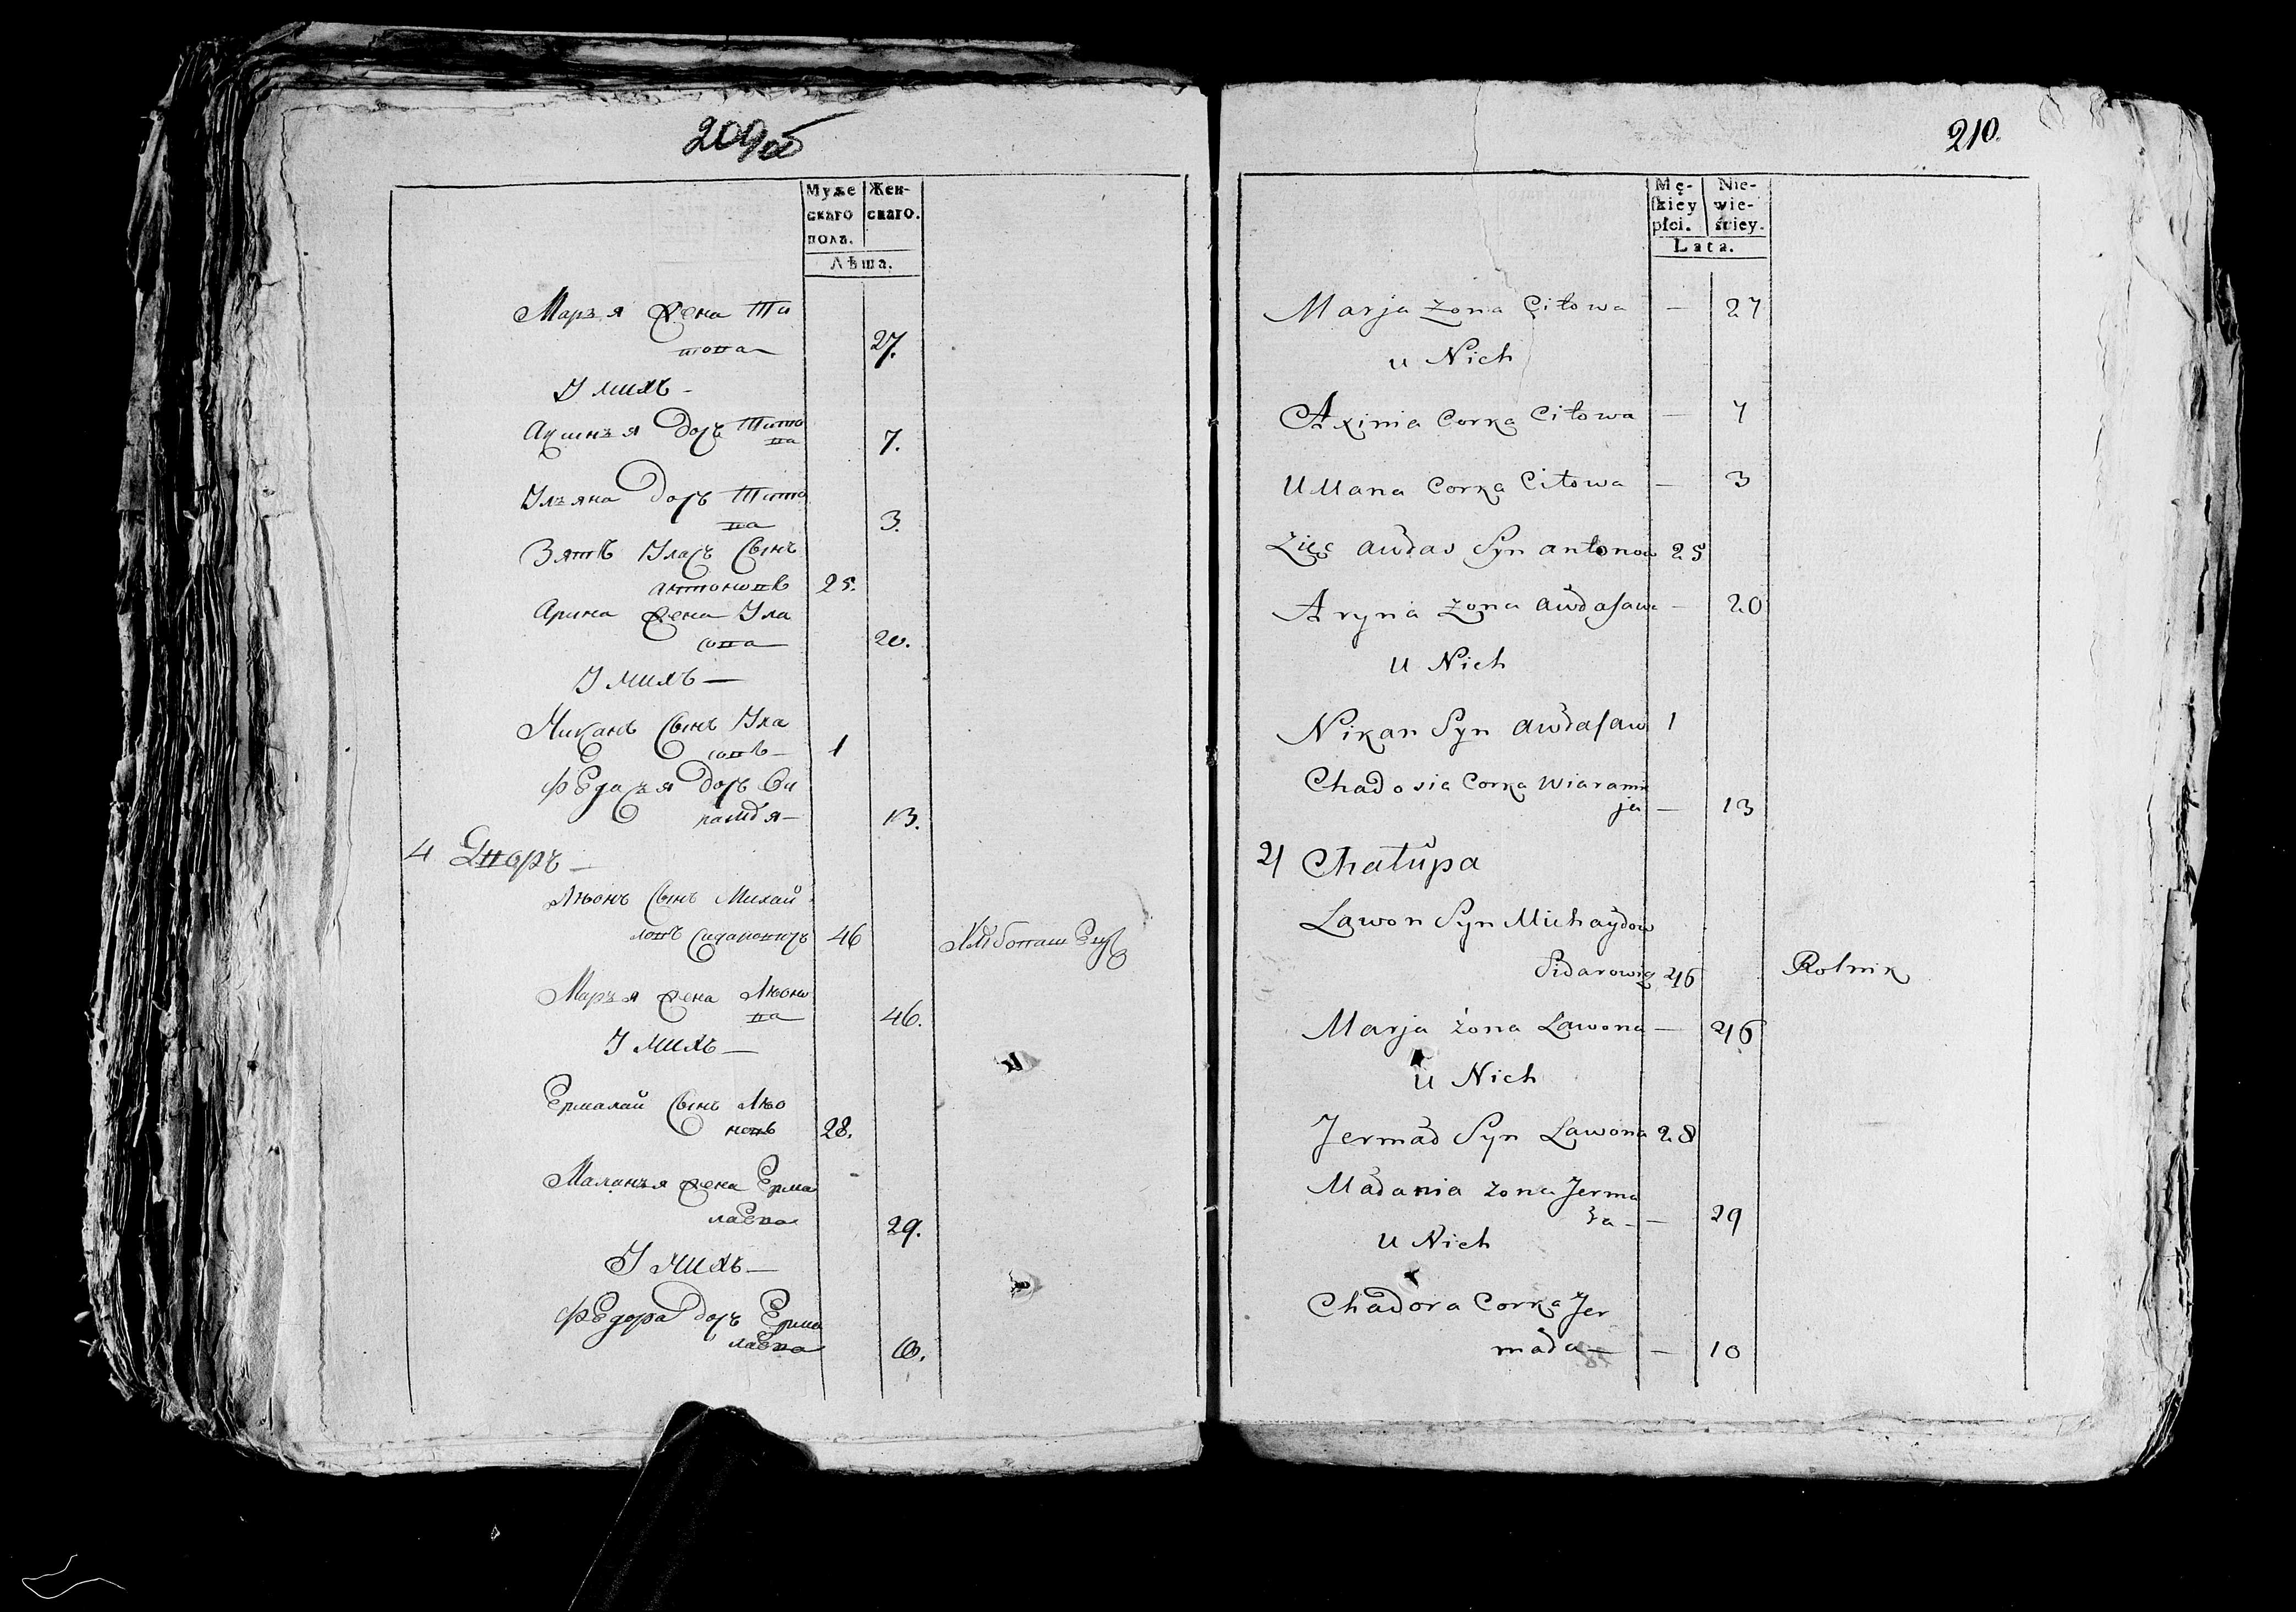 209об
Муже
скаго
пола.
Жен-
скаго.
Лѣта.
Марья жена Ти
това 27.
У нихъ
Аксинья дочь Тито
ва 7.
Ульяна дочь Тито
ва 3.
Зять Уласъ сынъ
Антоновъ 25.
Арина жена Ула
сова 20.
У нихъ
Миканъ сынъ Ула
совъ 1
Федосья дочь
13.
4 Дворъ
Лѣвонъ сынъ Михай
ловъ Сидаровичъ 46 Хлѣбопашецъ
Марья жена Лѣвоно
ва 46.
У нихъ
Ермалай сынъ Лѣво
новъ 28.
Маланья жена Ерма
лаева 29.
У нихъ
Федора дочь Ерма
лаева 10.
210.
Mę-
skiey
płci.
Nie-
wie-
ściey.
Lata.
Marja żona Citowa — 27
u Nich
Axinia Corka Citowa — 7
Ullana Corka Citowa — 3
Zięc Audas Syn antonow 25
Aryna żona audasawa — 20
u Nich
Nikan Syn audasaw 1
Chadosia Corka Wiarami
ja — 13
4 Chatupa
Lawon Syn Michaydow
Sidarowicz 46 Rolnik
Marja żona Lawona — 46
u Nich
Jermad Syn Lawona 28
Madania żona Jerma
da — 29
u Nich
Chadora Corka Jer
mada — 10